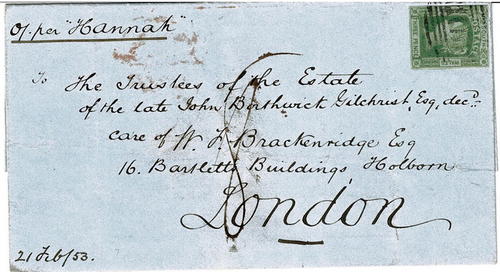 p. per "Hannah"
To The Trustees of the Estate
of the late John Borthwick Gilchrist, Esq, decd.
care of W. F. Brackenridge Esq
16. Bartletts Buildings, Holborn
London
21 Feb/53.